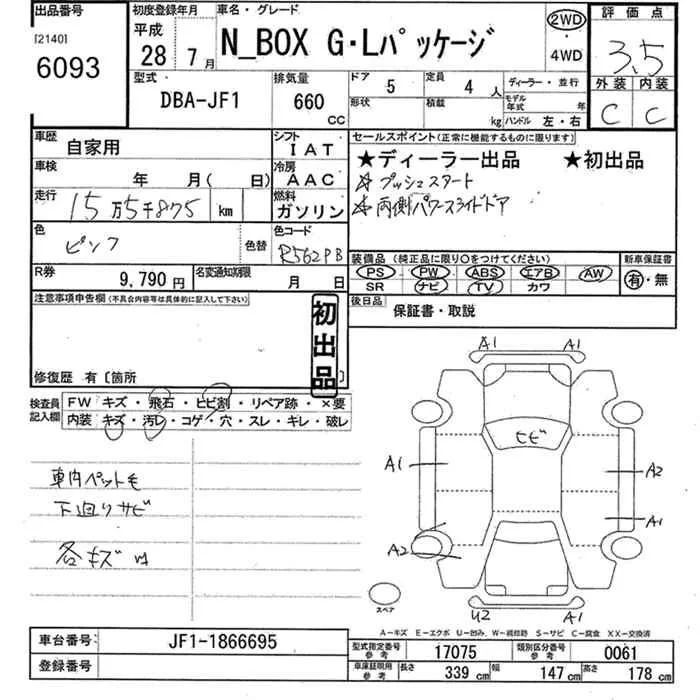 出品番号 初度登録年月 車名・グレード 2WD 評価点
[2140] 平成
6093 28年 7月 N_BOX G・Lパッケージ ・ 4WD 3.5
型式 排気量 ドア 5 定員 4人 ディーラー・並行 外装 内装
DBA-JF1 660cc 形状 積載 kg モデル年式 年 ハンドル 左・右 C C
車歴 自家用 シフト IAT セールスポイント(正常に機能するものに限ります)
車検 年 月( 日) 冷房 AAC ★ディーラー出品 ★初出品
走行 15万5千875 km 燃料 ガソリン ☆プッシュスタート
☆両側パワースライドドア
色 ピンク 色替 色コード R562PB
装備品(純正品に限り○をつけてください) 新車保証書
R券 9,790円 名変通知期限 月 日 PS PW ABS エアB AW 有・無
SR ナビ TV カワ
注意事項申告欄(不具合内容等は具体的に記入して下さい) 初出品 後日品 保証書・取説
修復歴 有〔箇所 〕
検査員記入欄 FW キズ・飛石・ヒビ割・リペア跡・×要
内装 キズ・汚レ・コゲ・穴・スレ・キレ・破レ
A1 A1
ヒビ
車内ペット毛 A1 A2
下廻りサビ A1
各キズ A2
スペア U2 A1
A-キズ E-エクボ U-凹み W-補修跡 S-サビ C-腐食 XX-交換済
車台番号 JF1-1866695 型式指定番号 参考 17075 類別区分番号 参考 0061
登録番号 車庫証明用 参考 長さ 339cm 幅 147cm 高さ 178cm